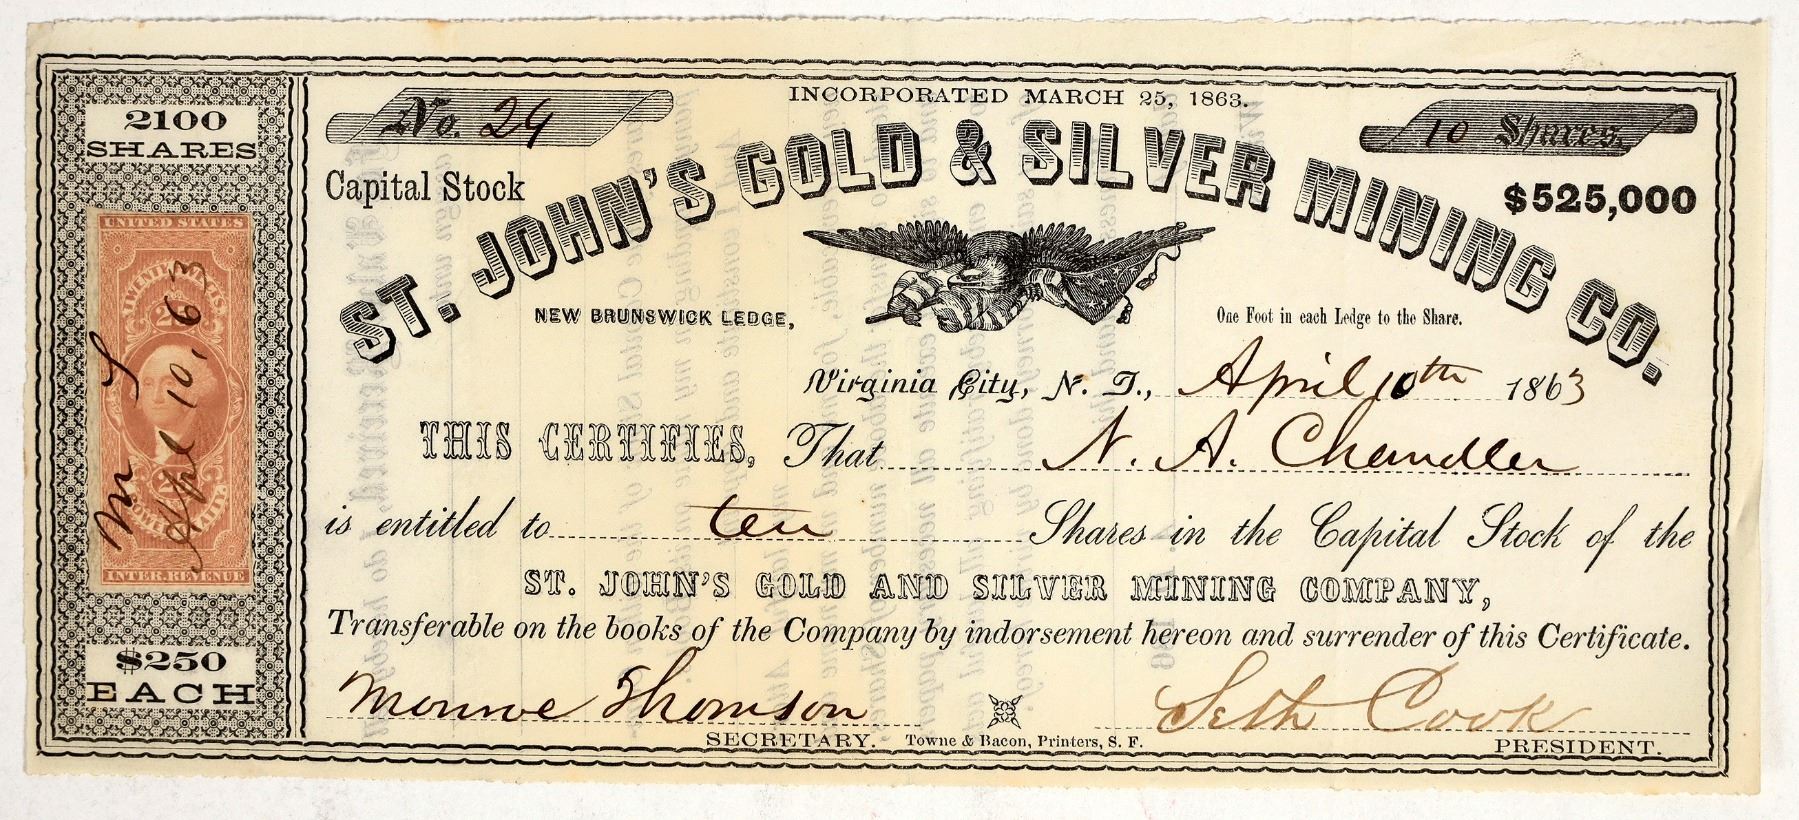 INCORPORATED MARCH 25, 1863.
No. 24
10 Shares.
2100
SHARES
Capital Stock
$525,000
ST. JOHN'S GOLD & SILVER MINING CO.
UNITED STATES
NEW BRUNSWICK LEDGE,
One Foot in each Ledge to the Share.
Virginia City, N. T., April 10th 1863
THIS CERTIFIES, That N. A. Chandler
is entitled to ten Shares in the Capital Stock of the
ST. JOHN'S GOLD AND SILVER MINING COMPANY,
Transferable on the books of the Company by indorsement hereon and surrender of this Certificate.
M T
Apl 10, 63
INTER. REVENUE
$250
EACH
Monroe Thomson
Seth Cook
SECRETARY.
Towne & Bacon, Printers, S. F.
PRESIDENT.